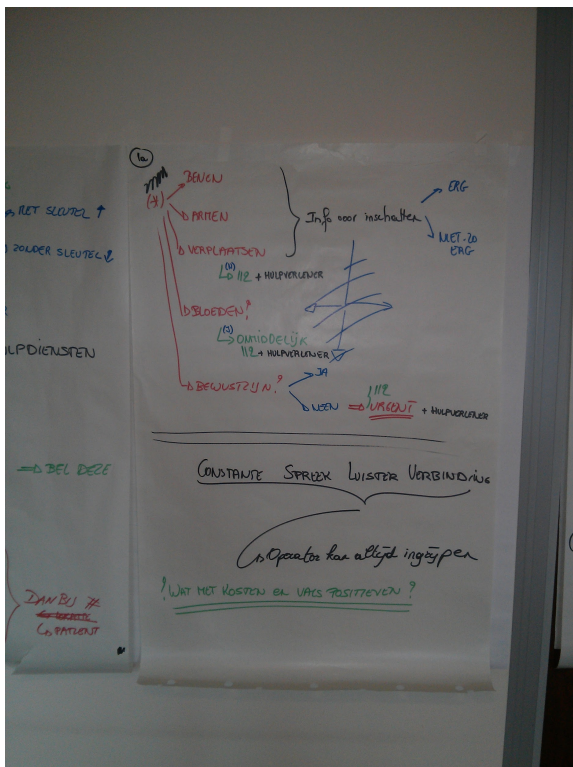 MET SLEUTEL ↑
ZONDER SLEUTEL ↓
LPDIENSTEN
⇒ BEL DEZE
DAN BIJ #
↳ PATIENT
1a
BENEN
ARMEN
VERPLAATSEN
↳ 112 + HULPVERLENER
BLOEDEN?
↳ ONMIDDELIJK
112 + HULPVERLENER
BEWUSTZIJN?
JA
NEEN ⇒ URGENT + HULPVERLENER
112
Info voor inschatten
ERG
NIET-ZO
ERG
CONSTANTE SPREEK LUISTER VERBINDING
↳ Operator kan altijd ingrijpen
? WAT MET KOSTEN EN VALS POSITIEVEN ?